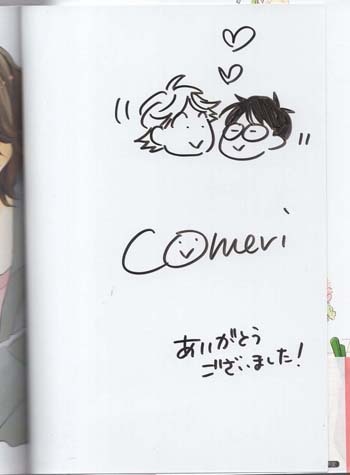 Comeri
ありがとう
ございました!